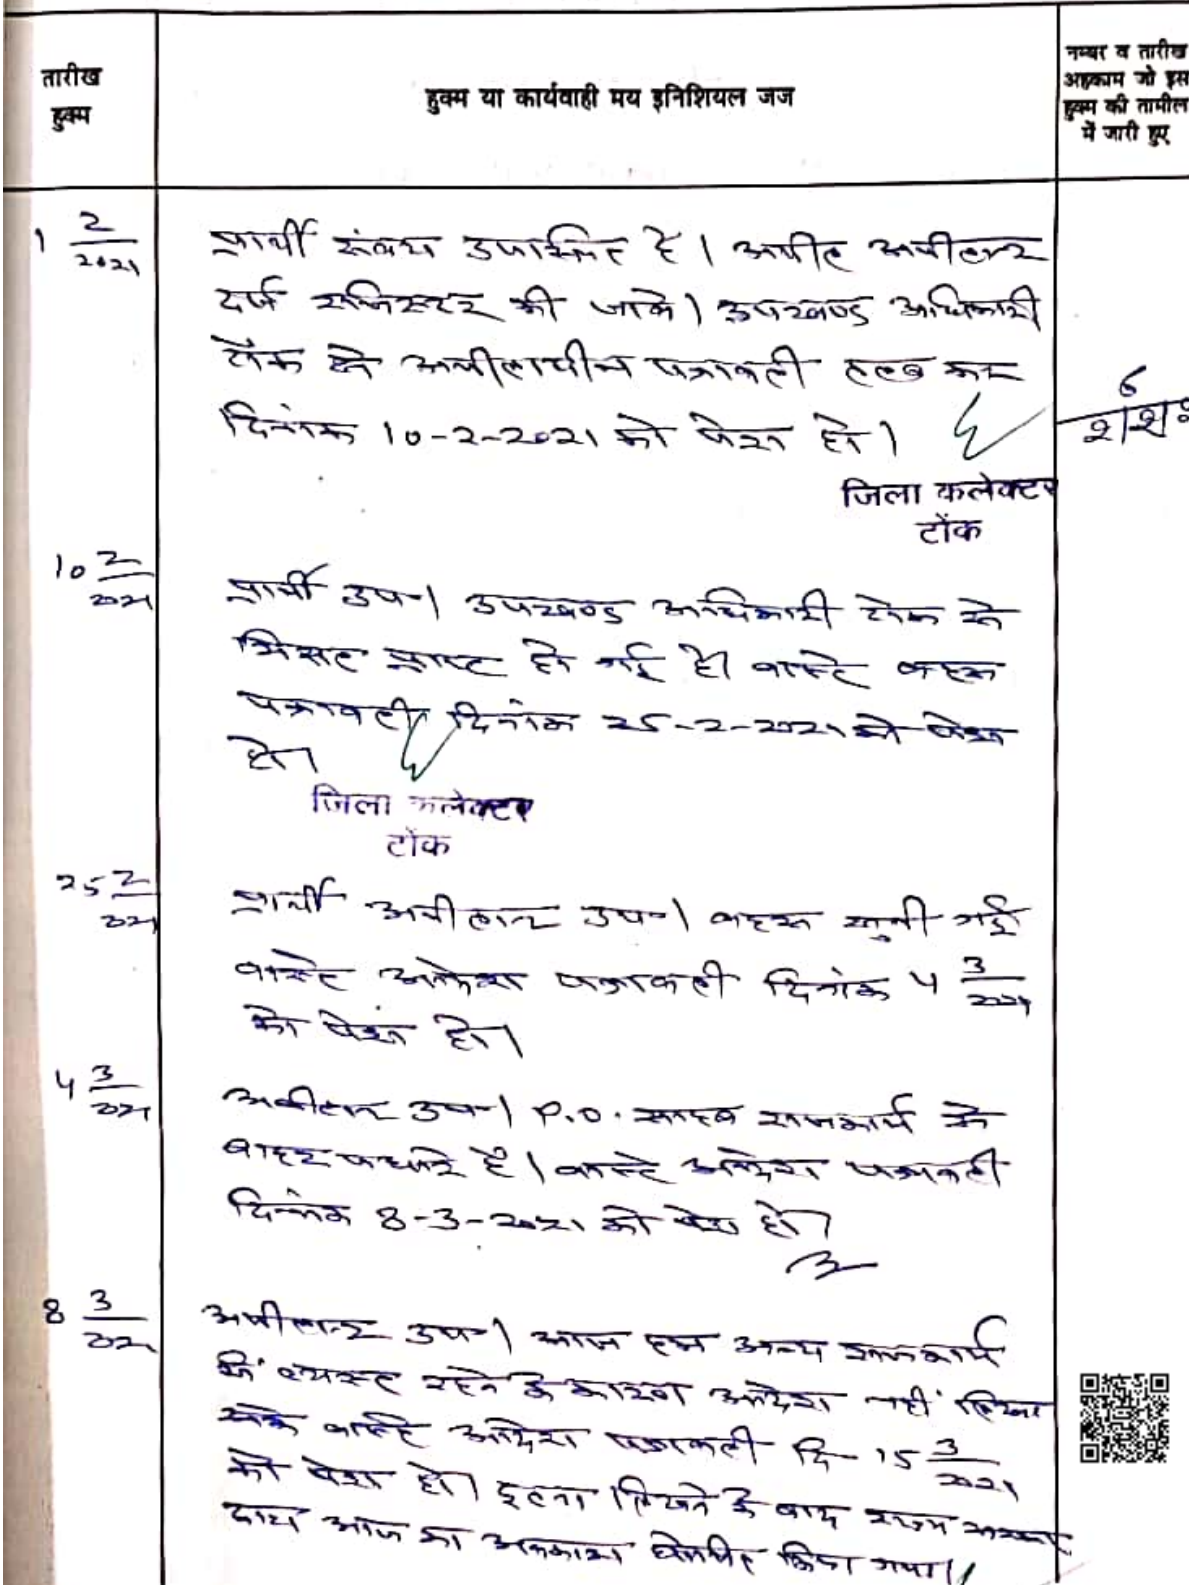 तारीख
हुक्म
हुक्म या कार्यवाही मय इनिशियल जज
नम्बर व तारीख
अहकाम जो इस
हुक्म की तामील
में जारी हुए
1 2/2021
प्रार्थी स्वंय उपस्थित है। अपील अपीलान्ट
दर्ज रजिस्टर की जावे। उपखण्ड अधिकारी
टोंक से अपीलाधीन पत्रावली तलब कर
दिनांक 10-2-2021 को पेश हो।
जिला कलेक्टर
टोंक
10 2/2021
प्रार्थी उप०। उपखण्ड अधिकारी टोंक से
मिसल प्राप्त हो गई है। वास्ते बहस
पत्रावली दिनांक 25-2-2021 को पेश
हो।
जिला कलेक्टर
टोंक
25 2/2021
प्रार्थी अपीलान्ट उप०। बहस सुनी गई
वास्ते आदेश पत्रावली दिनांक 4 3/2021
को पेश हो।
4 3/2021
अपीलान्ट उप०। P.O. साहब राजकार्य से
बाहर पधारे हैं। वास्ते आदेश पत्रावली
दिनांक 8-3-2021 को पेश हो।
8 3/2021
अपीलान्ट उप०। आज हम अन्य राजकार्य
में व्यस्त रहने के कारण आदेश नहीं लिखा
सके वास्ते आदेश पत्रावली दि० 15 3/2021
को पेश हो। इतना लिखने के बाद राज्य सरकार
द्वारा आज का अवकाश घोषित किया गया।